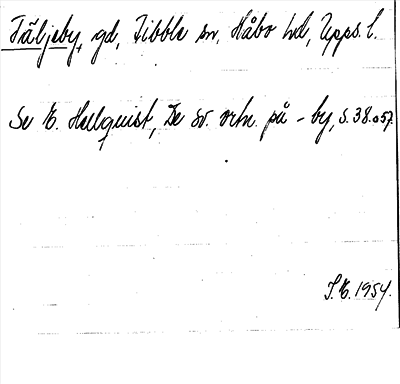 Täljeby, gd, Tibble sn, Håbo hd, Upps. l.
Se E. Hellquist, De sv. ortn. på -by, s. 38 o 57.
S.E. 1954.